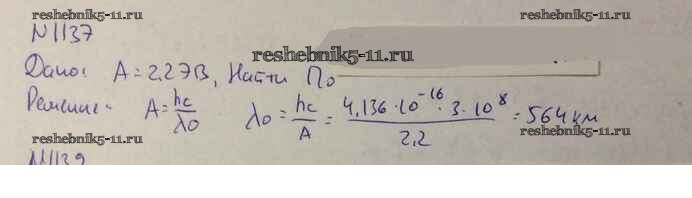 reshebnik5-11.ru reshebnik5-11.ru
N1137
reshebnik5-11.ru
Дано: A = 2,2 эВ, Найти
reshebnik5-11.ru
Решение. A = hc/λ0 λ0 = hc/A = 4,136·10^-16·3·10^8/2,2 = 564 км
reshebnik5-11.ru reshebnik5-11.ru
N1139